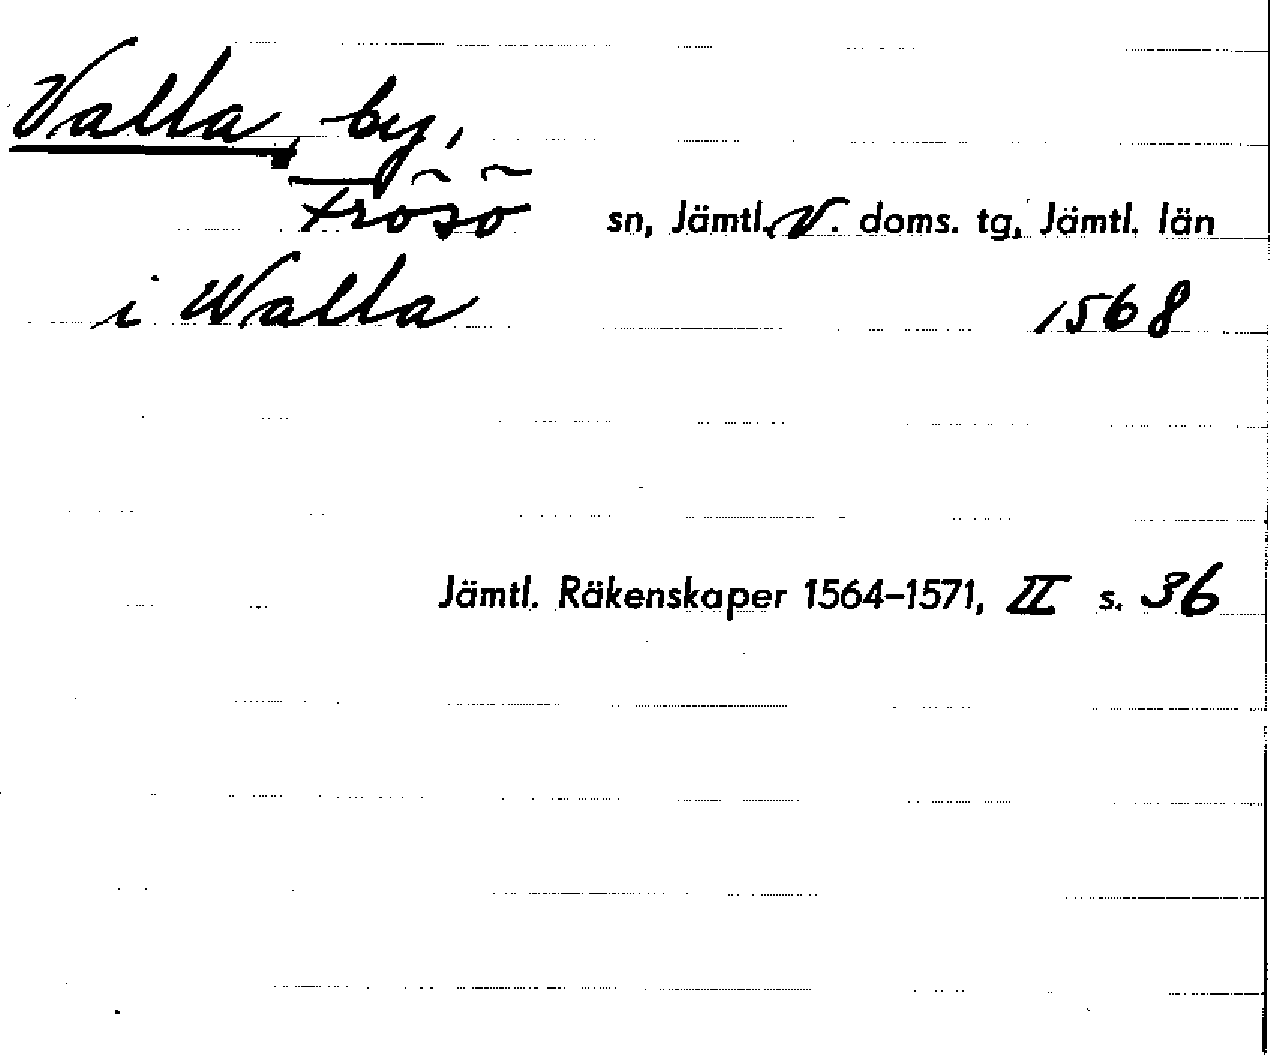 Valla, by,
Frösö sn, Jämtl. V. doms. tg, Jämtl. län
i Walla 1568
Jämtl. Räkenskaper 1564–1571, II s. 36